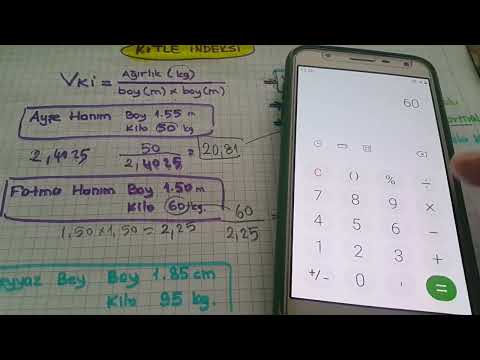 KİTLE İNDEKSİ
VKi = Ağırlık (kg) / boy(m) x boy(m)
Ayşe Hanım Boy 1.55 m
Kilo 50 kg
2,4025 50 / 2,4025 = 20,81
Fatma Hanım Boy 1.50 m
Kilo 60 kg.
1,50 x 1,50 = 2,25 60 / 2,25 =
Bey Boy 1.85 cm
Kilo 95 kg.
60
C () % ÷
7 8 9 ×
4 5 6 −
1 2 3 +
+/− 0 , =